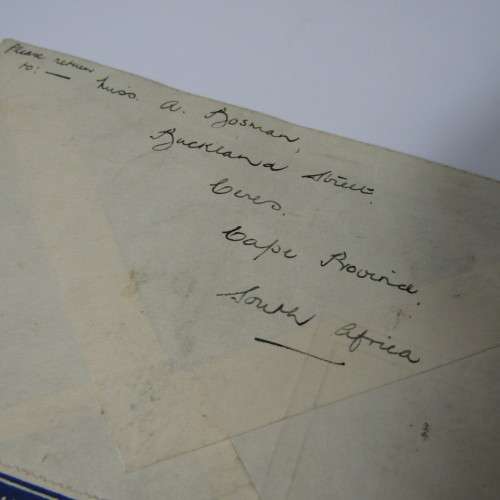 Please return
to: — Miss. A. Bosman,
Buckland Street.
Ceres.
Cape Province.
South Africa